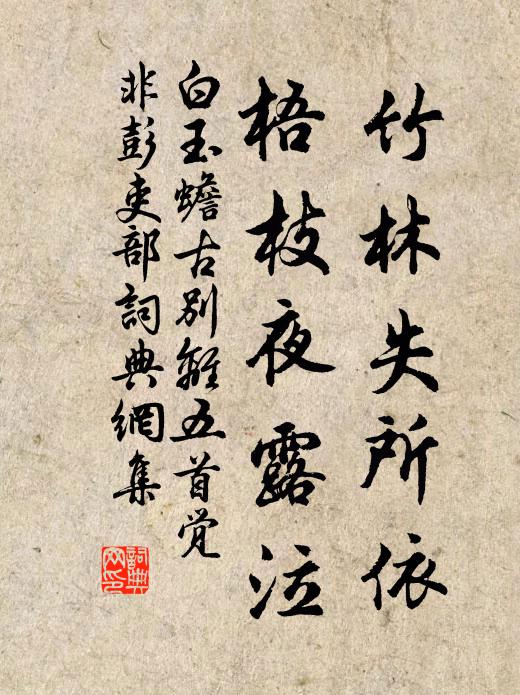 竹林失所依
梧枝夜露泣
白玉蟾古别離五首觉
非彭吏部詞典網集
詞典网印